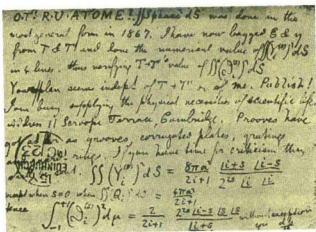 O T'! R. U. AT 'OME? ∬ Spharc² dS was done in the
most general form in 1867. I have now bagged ξ & η
from T & T' and done the numerical value of ∬(Y_i^(s))² dS
in 4 lines, thus verifying T + T''s value of ∬(ϑ_i^(s))² dS
Your plan seems indep^t of T + T' or of me. Publish!
I am busy supplying the physical necessities of scientific life
11 Scroope Terrace Cambridge. Prooves have
as grooves, corrugated plates, gratings
rings. If you have time for criticism then
∬ (Y_i^(s))² dS = 8πa²/(2i+1) · (i+s)! (i-s)! / (2^(2s) i! i!)
except when s=0 when ∬ Q_i² dS = 4πa²/(2i+1)
hence ∫_{-1}^{+1} (ϑ_i^(s))² dμ = 2/(2i+1) · 2^(2s) (i-s)! s! s! / (i+s)! without exception